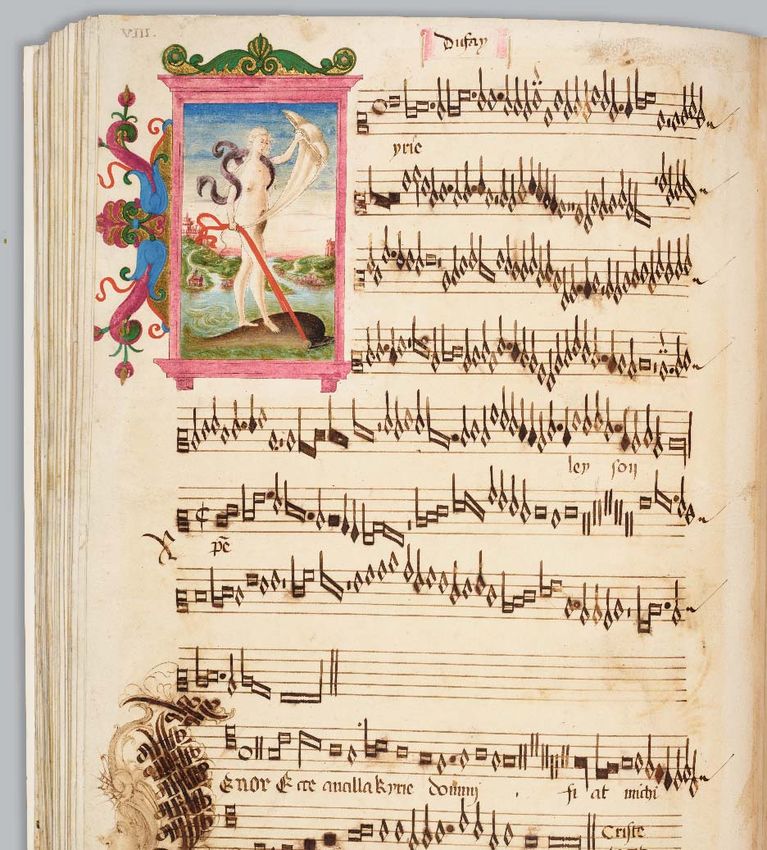 VIII.
Dufay
yrie
ley son
Xpe
Enor Ecce ancilla kyrie domini fi at michi
Criste